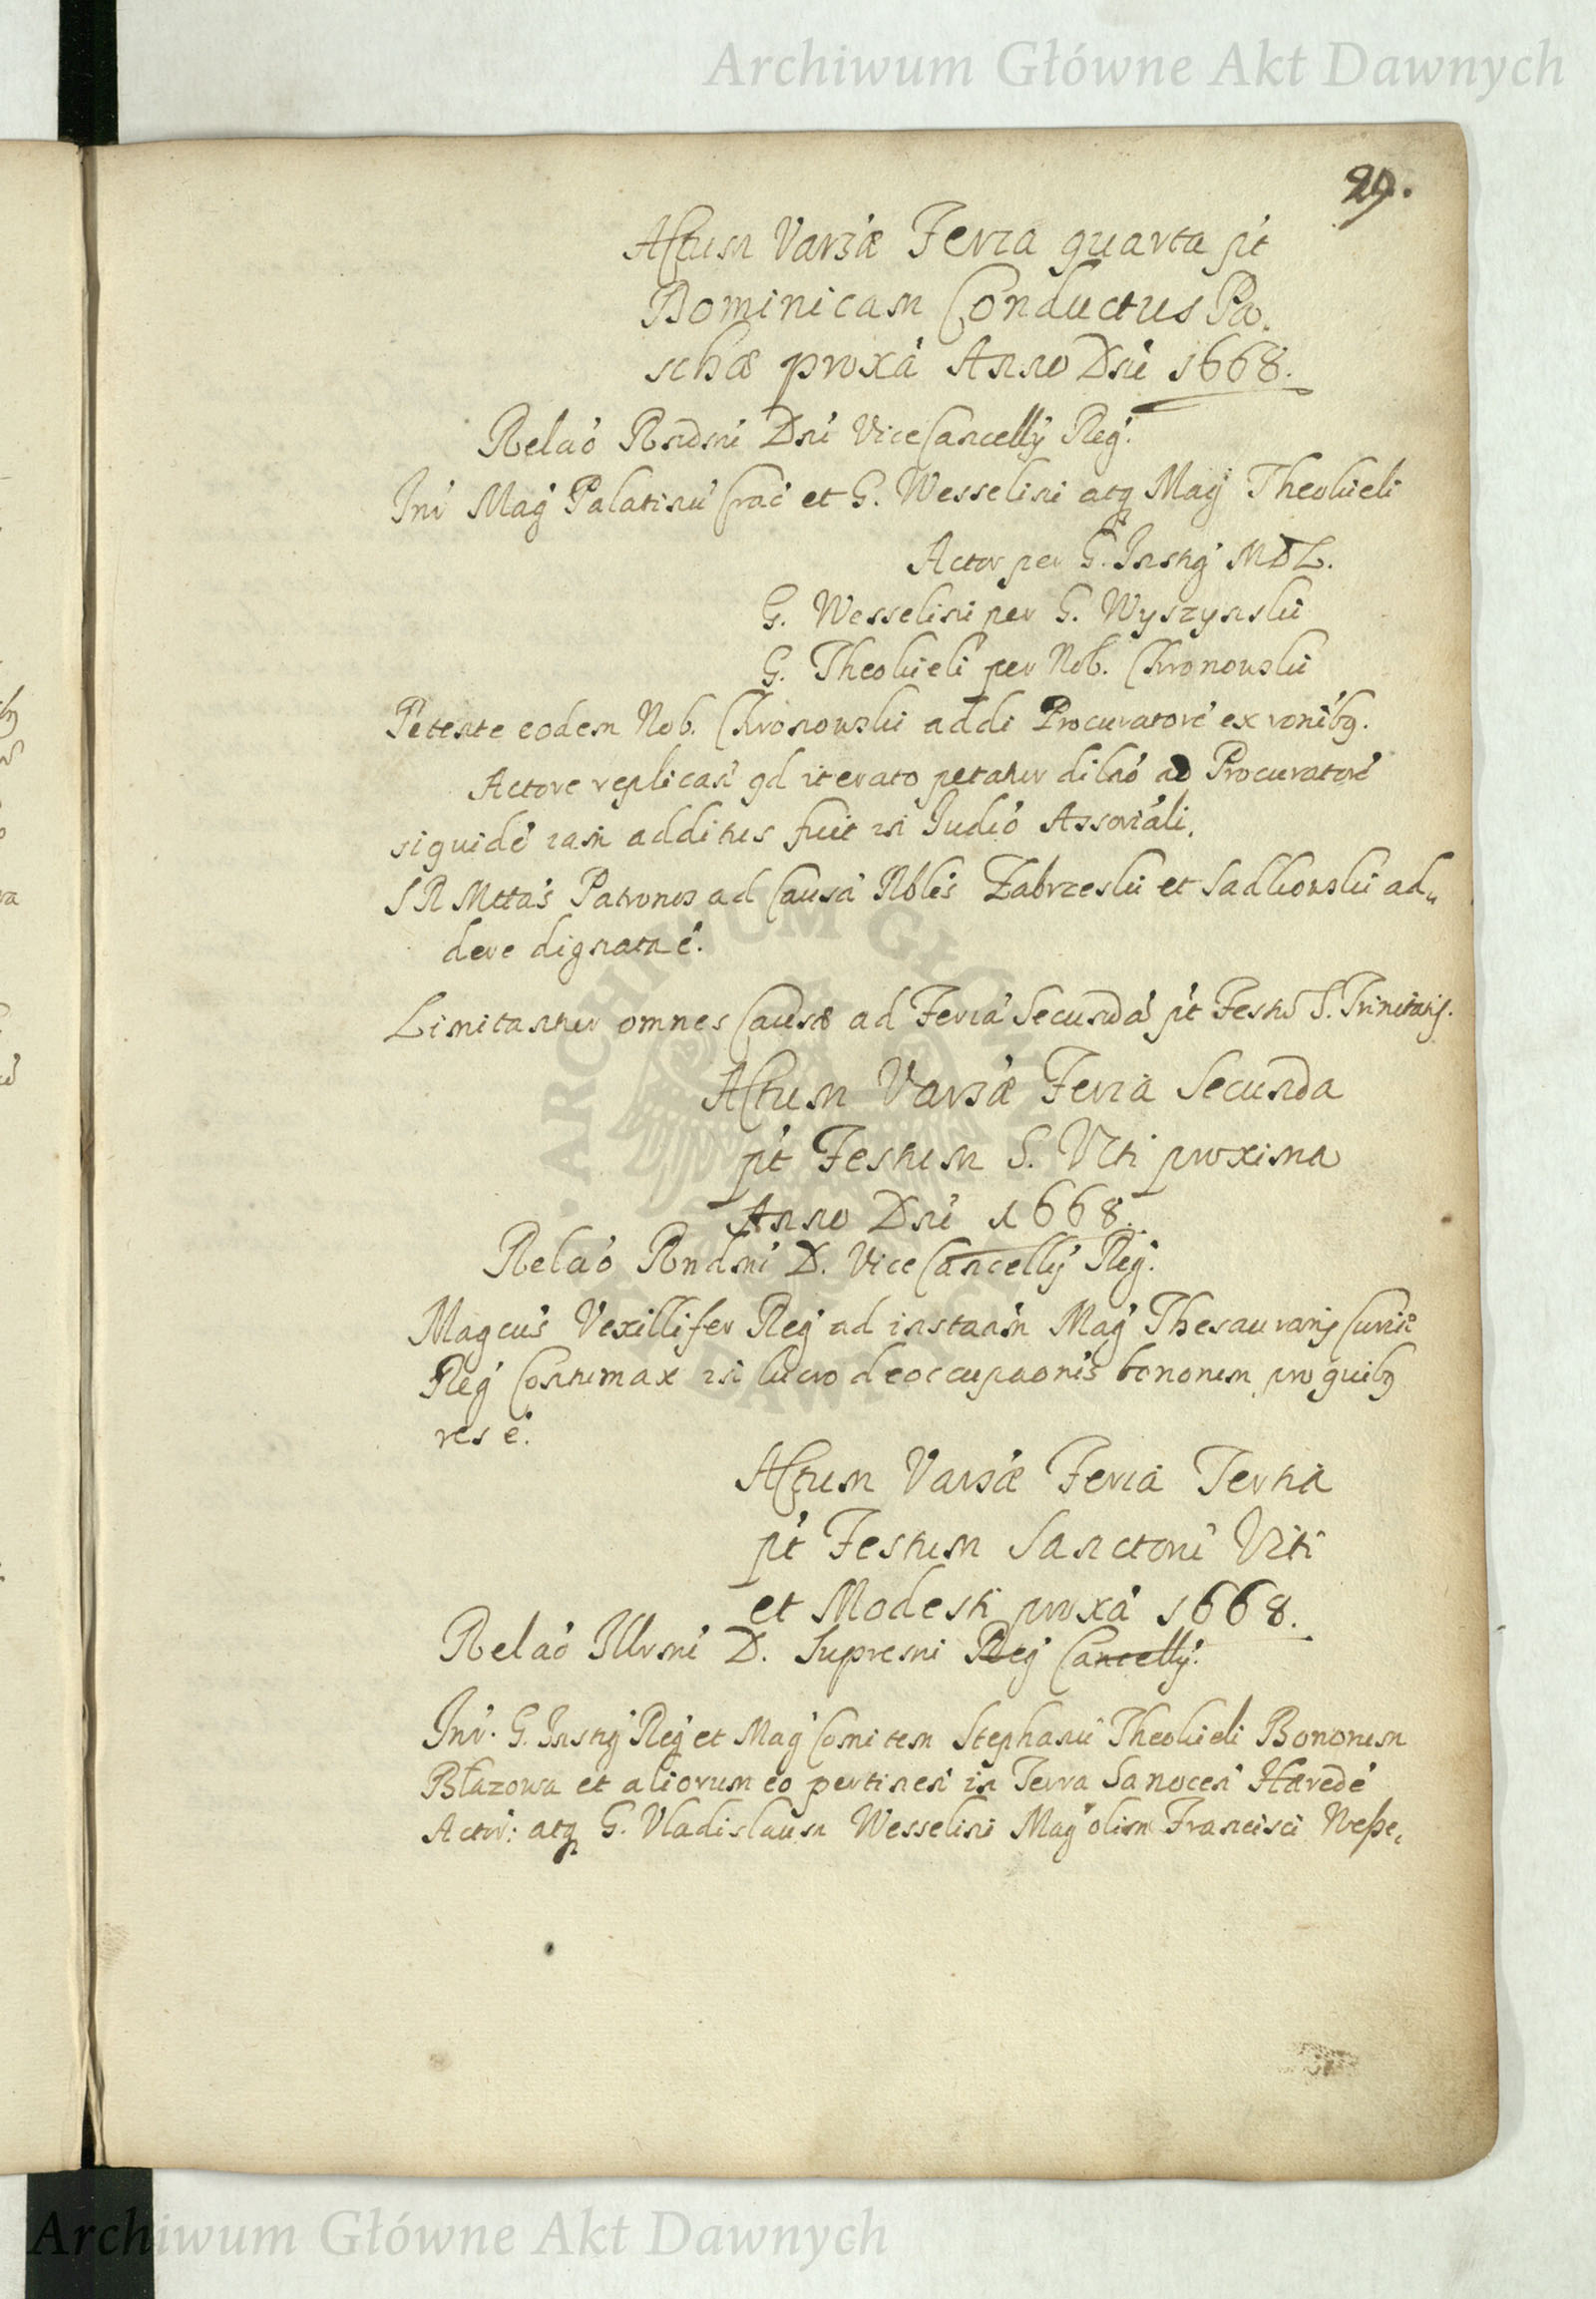 Archiwum Główne Akt Dawnych
29.
Actum Varsæ Feria quarta pt
Dominicam Conductus Pa-
schæ proxa Anno Dni 1668.
Relao Rndmi Dni ViceCancellÿ Reg.
Int Mag Palatinu Crac et G. Wesselini atq Mag Theokieli
Actor per G. Instig MDL.
G. Wesselini per G. Wyszynski
G. Theokieli per Nob. Chronowski
Petente eodem Nob. Chronowski addi Procuratore ex ronibq.
Actore replican qd iterato petatur dilao ad Procuratore
siquide iam additus fuit in Judio Assoriali.
S R Mttas Patronos ad Causa Nbles Zabrzeski et Sadkowski ad-
dere dignata e.
Limitantur omnes Causæ ad Feria Secunda pt Festu S. Trinitatis.
Actum Varsæ Feria Secunda
pt Festum S. Viti proxima
Anno Dni 1668.
Relao Rndmi D. ViceCancellÿ Reg.
Magcus Vexillifer Reg ad instanm Mag Thesaurarij Curiæ
Reg Contumax in lucro deoccupaonis bonorum pro quibq
res e.
Actum Varsæ Feria Tertia
pt Festum Sanctoru Viti
et Modesti proxa 1668.
Relao Illrmi D. Supremi Reg Cancellÿ.
Int. G. Instig Reg et Mag Comitem Stephanu Theokieli Bonorum
Błazowa et aliorum eo pertinen in Terra Sanocen Hærede
Actor: atq G. Vladislaum Wesselini Mag olim Francisci Weße-
ARCHIWUM GŁÓWNE AKT DAWNYCH
Archiwum Główne Akt Dawnych